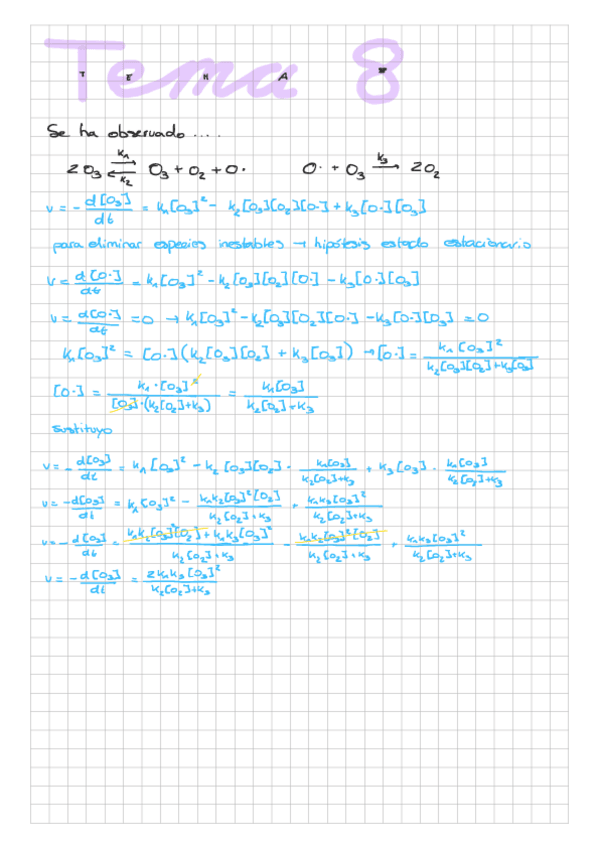 Tema 8
T E M A 8
Se ha observado ....
2O₃ ⇌ O₃ + O₂ + O· (k₁, k₂) O· + O₃ → 2O₂ (k₃)
v = - d[O₃]/dt = k₁[O₃]² - k₂[O₃][O₂][O·] + k₃[O·][O₃]
para eliminar especies inestables → hipótesis estado estacionario
v = d[O·]/dt = k₁[O₃]² - k₂[O₃][O₂][O·] - k₃[O·][O₃]
v = d[O·]/dt = 0 → k₁[O₃]² - k₂[O₃][O₂][O·] - k₃[O·][O₃] = 0
k₁[O₃]² = [O·](k₂[O₃][O₂] + k₃[O₃]) → [O·] = k₁[O₃]² / k₂[O₃][O₂]+k₃[O₃]
[O·] = k₁·[O₃]² / [O₃]·(k₂[O₂]+k₃) = k₁[O₃] / k₂[O₂]+k₃
sustituyo
v = - d[O₃]/dt = k₁[O₃]² - k₂[O₃][O₂] · k₁[O₃] / k₂[O₂]+k₃ + k₃[O₃] · k₁[O₃] / k₂[O₂]+k₃
v = -d[O₃]/dt = k₁[O₃]² - k₁k₂[O₃]²[O₂] / k₂[O₂]+k₃ + k₁k₃[O₃]² / k₂[O₂]+k₃
v = - d[O₃]/dt = k₁k₂[O₃]²[O₂] + k₁k₃[O₃]² / k₂[O₂]+k₃ - k₁k₂[O₃]²[O₂] / k₂[O₂]+k₃ + k₁k₃[O₃]² / k₂[O₂]+k₃
v = - d[O₃]/dt = 2k₁k₃[O₃]² / k₂[O₂]+k₃